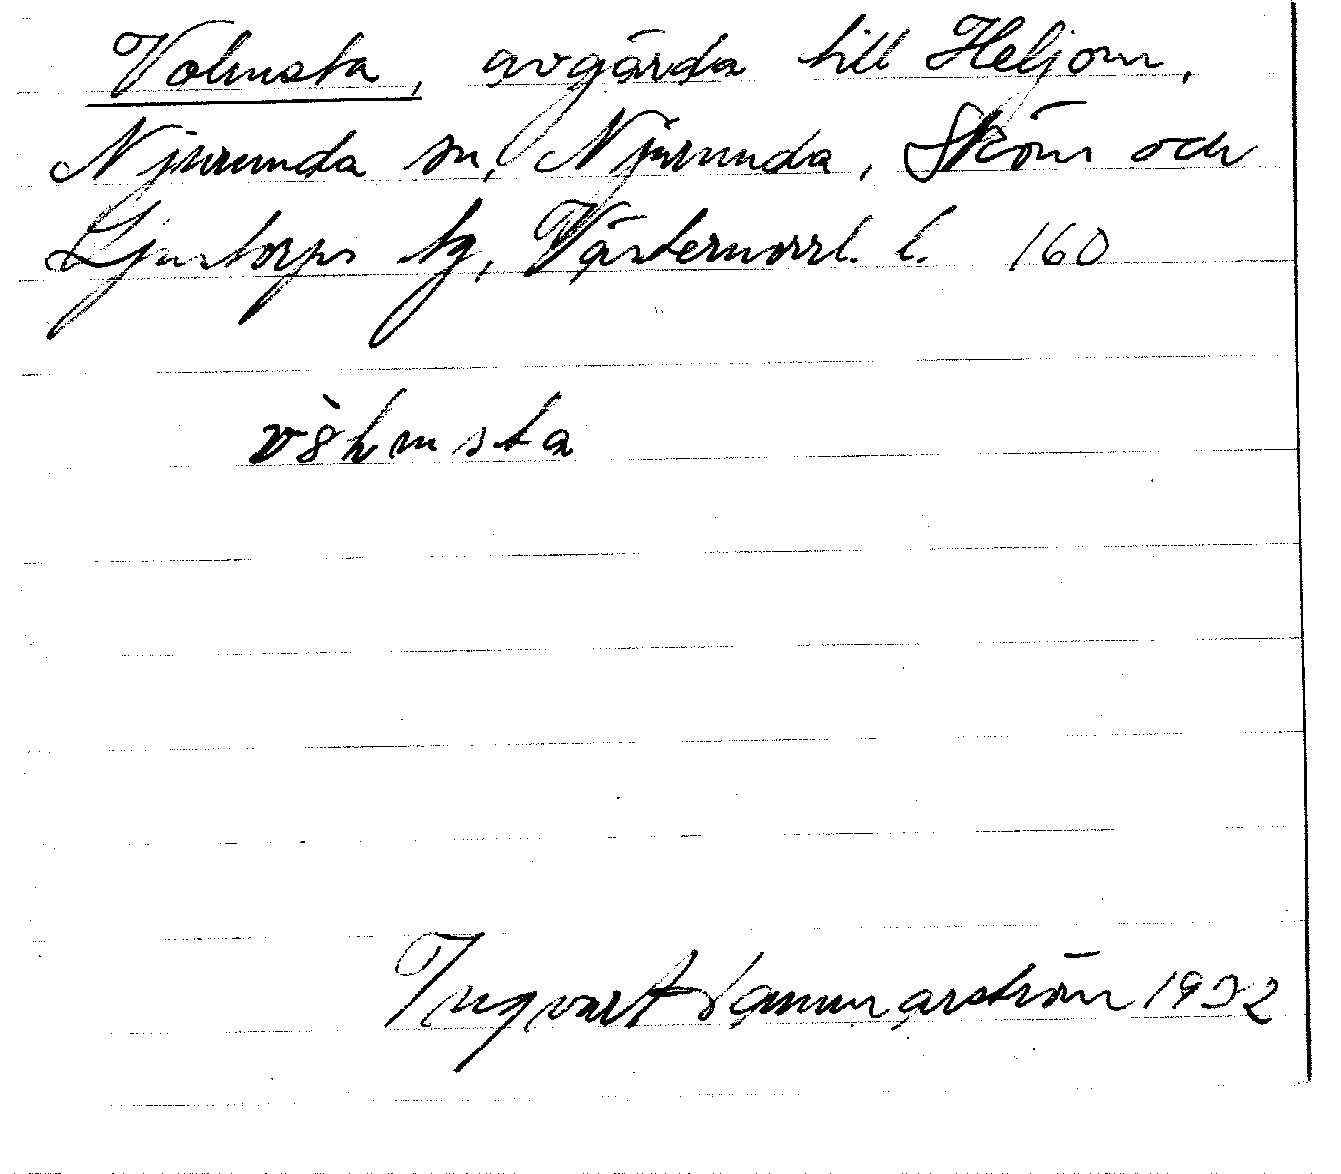 Volmsta, avgärda till Heljom,
Njurunda sn, Njurunda, Sköns och
Ljustorps tg, Västernorrl. l. 160
Ingvart Hammarström 1932